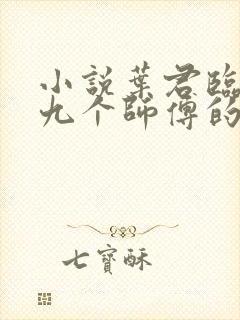 小説葉君臨
九个師傅的
七寶酥